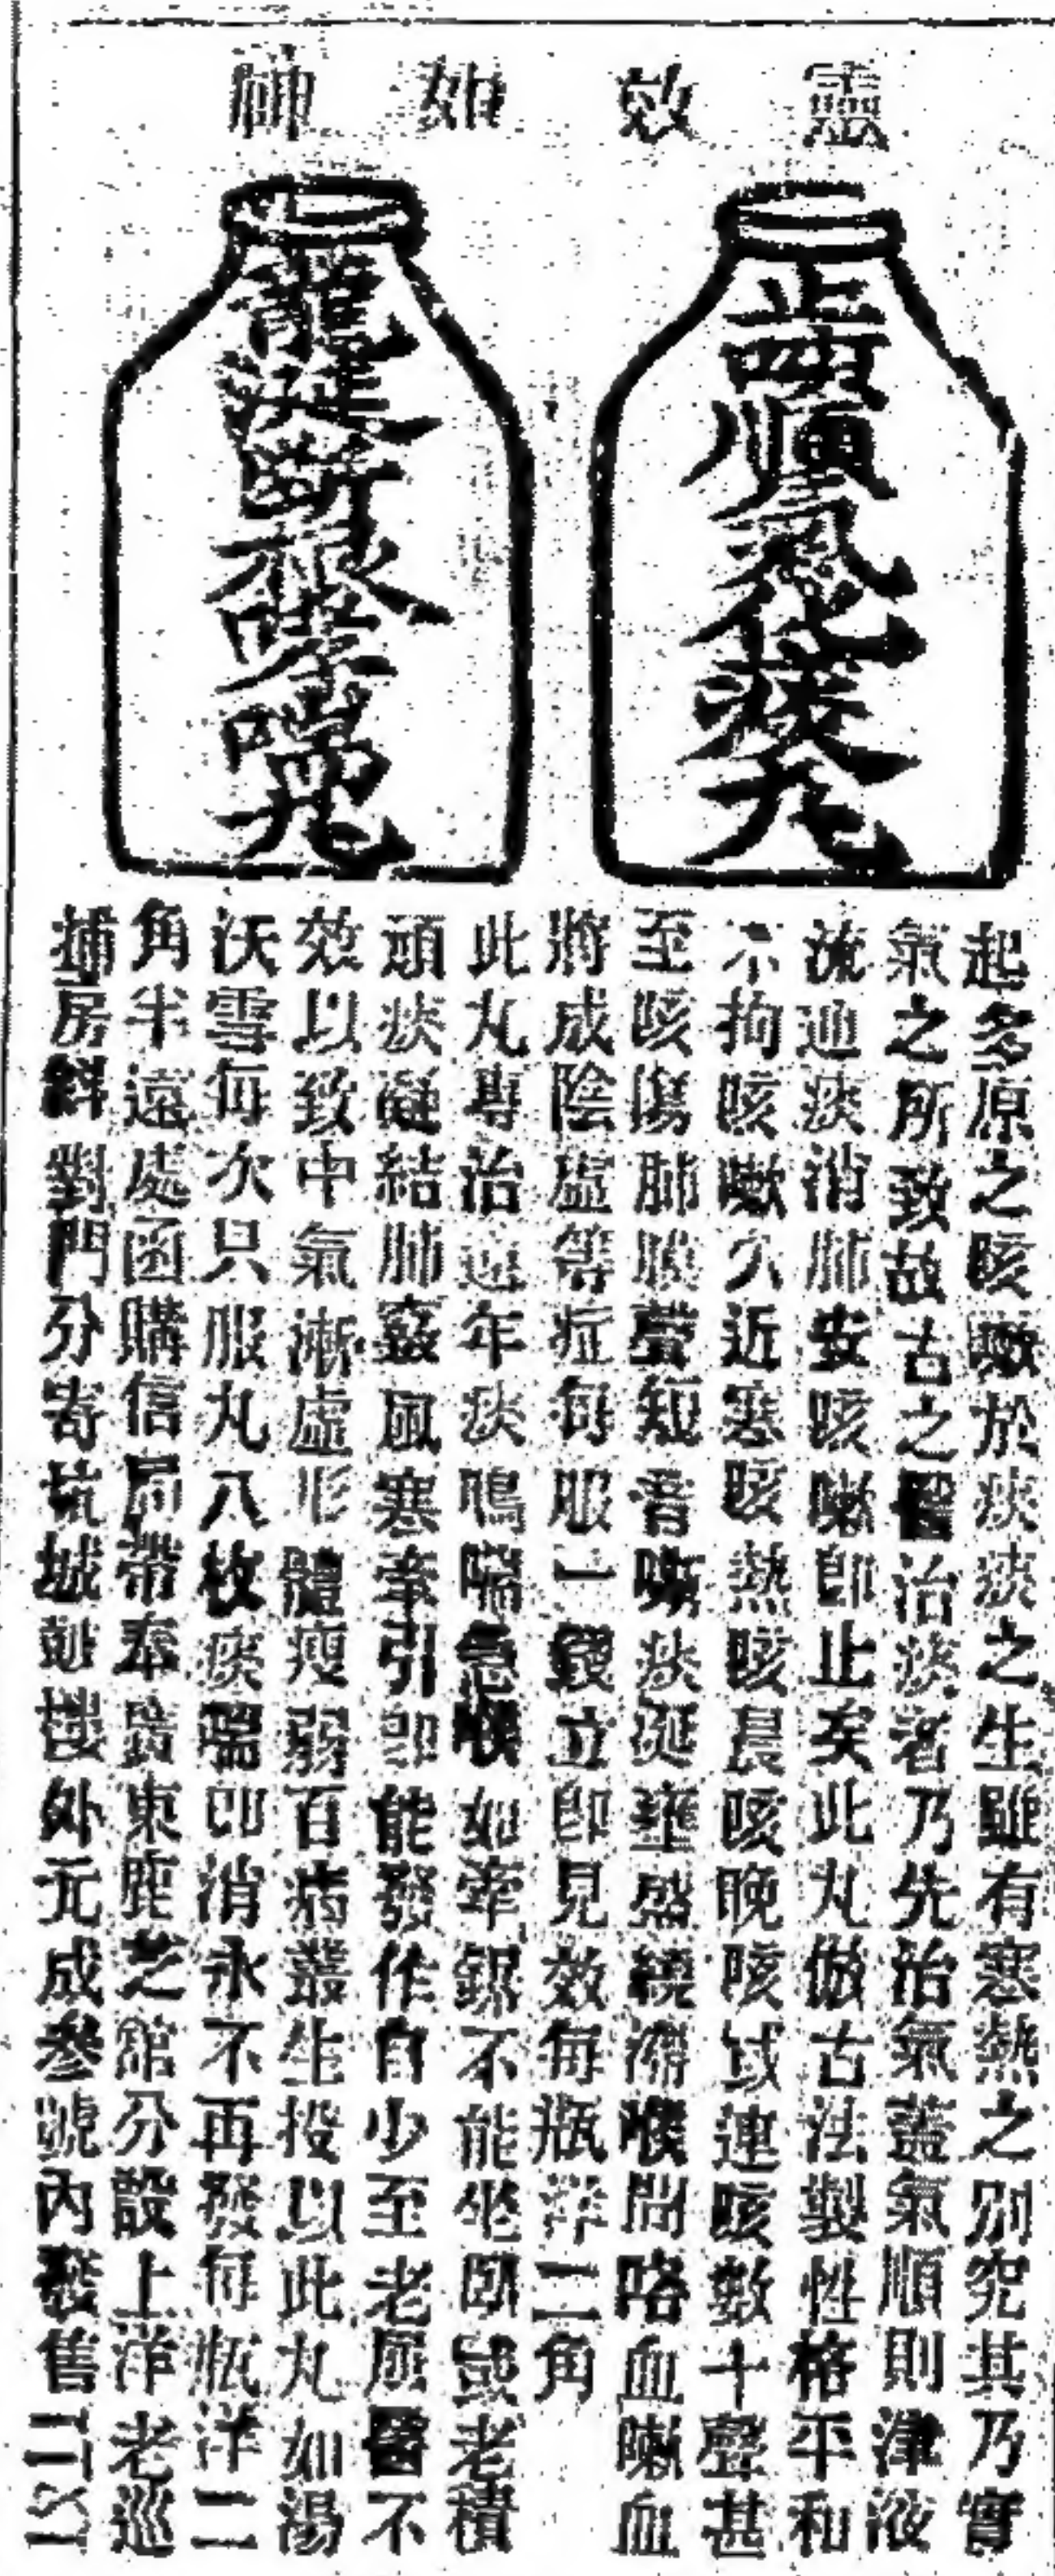 靈效如神
止嗽順氣化痰丸
龍涎斷根哮喘丸
起多原之咳嗽於痰痰之生雖有寒熱之別究其乃實
氣之所致故古之醫治痰者乃先治氣蓋氣順則津液
流通痰消肺安咳嗽卽止矣此丸倣古法製性格平和
不拘咳嗽久近寒咳熱咳晨咳晚咳或連咳數十聲甚
至咳傷肺膜聲短音嘶痰涎壅盛繞滯喉間咯血嗽血
將成陰虛等症每服一錢立卽見效每瓶洋二角
此丸專治遠年痰鳴喘急喉如牽鋸不能坐臥或老積
頑痰凝結肺竅風寒牽引卽能發作自少至老屢醫不
效以致中氣漸虛形體瘦弱百病叢生投以此丸如湯
沃雪每次只服丸八枚痰喘卽消永不再發每瓶洋二
角半遠處函購信局帶奉廣東鹿芝館分設上洋老巡
捕房斜對門分寄杭城 樓外元成參號內發售